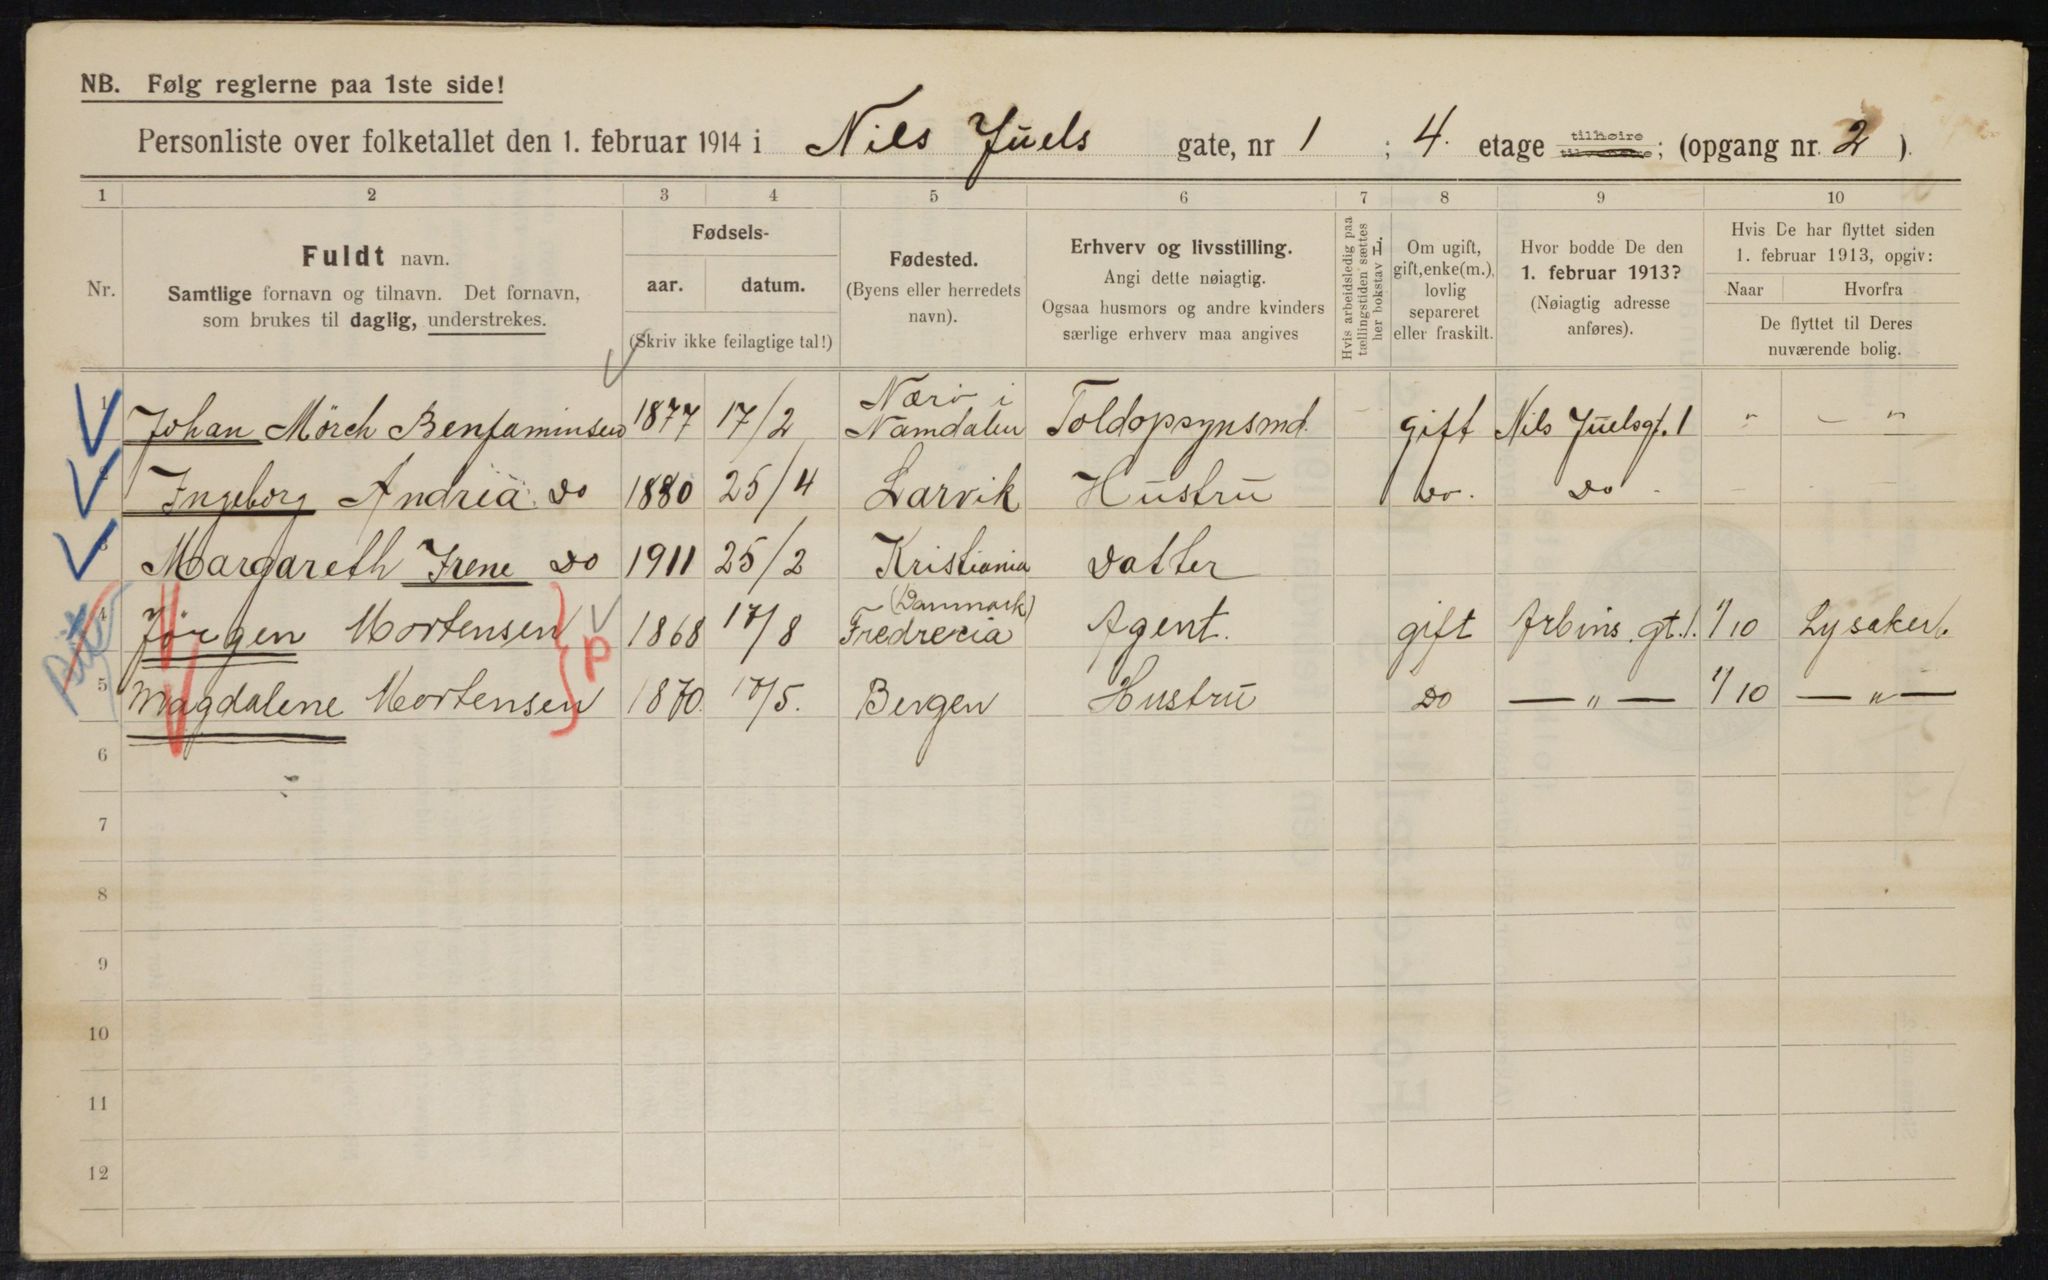 NB. Følg reglerne paa 1ste side!
Personliste over folketallet den 1. februar 1914 i Nils Juels gate, nr 1 ; 4. etage tilhøire ; (opgang nr. 2 ).
1 2 3 4 5 6 7 8 9 10
Nr.
Fuldt navn.
Samtlige fornavn og tilnavn. Det fornavn,
som brukes til daglig, understrekes.
Fødsels-
aar. datum.
(Skriv ikke feilagtige tal!)
Fødested.
(Byens eller herredets
navn).
Erhverv og livsstilling.
Angi dette nøiagtig.
Ogsaa husmors og andre kvinders
særlige erhverv maa angives
Hvis arbeidsledig paa
tællingstiden sættes
her bokstav L.
Om ugift,
gift, enke(m.),
lovlig
separeret
eller fraskilt.
Hvor bodde De den
1. februar 1913?
(Nøiagtig adresse
anføres).
Hvis De har flyttet siden
1. februar 1913, opgiv:
Naar Hvorfra
De flyttet til Deres
nuværende bolig.
1 Johan Mörch Benjaminsen 1877 17/2 Nærö i Namdalen Toldopsynsmd. gift Nils Juelsgt. 1 " — "
2 Ingeborg Andrea Do 1880 25/4 Larvik Hustru Do. Do -
3 Margareth Irene Do 1911 25/2 Kristiania Datter
4 Jørgen Mortensen 1868 17/8 (Danmark) Fredrecia Agent. gift Arbins gt. 1. 1/10 Lysaker.
P
5 Magdalene Mortensen 1870. 17/5. Bergen Hustru Do — " — 1/10 — " —
6
7
8
9
10
11
12